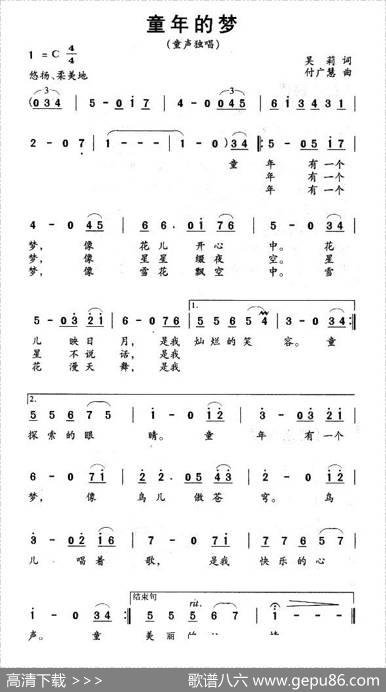 童年的梦
（童声独唱）
1 = C 4/4
悠扬、柔美地
吴 莉 词
付广慧 曲
(0 3 4 | 5 - 0 1 7 | 4 - 0 0 4 5 | 6 1 3 4 3 1
2 - 0 7 | 1 - - - | 1 - 0) 3 4 |: 5 - 0 5 1 7
童 年 有一个
年 有一个
年 有一个
4 - 0 4 5 | 6 6. 0 1 7 6 | 5 - 0 3 4
梦， 像 花儿 开心 中。 花
梦， 像 星星 缀夜 空。 星
梦， 像 雪花 飘空 中。 雪
5 - 0 3 2 1 | 6 - 0 7 6 | 5 5 5 6 5 4 | 3 - 0 3 4 :|
1.
儿 映日 月， 是我 灿烂的笑 容。 童
星 不说 话， 是我
花 漫天 舞， 是我
2.
5 5 5 6 7 5 | 1 - 0 1 2 | 3 - 0 3 2 1
探索的眼 睛。 童 年 有一个
6 - 0 7 1 | 2 2. 0 5 4 3 | 2 - 0 1 2
梦， 像 鸟儿 傲苍 穹。 鸟
3 - 0 2 1 6 | 7 - 0 7 1 | 7 7 7 6 5 7
儿 唱着 歌， 是我 快乐的心
结束句 rit.
1 - 0 3 4 :| 5 5 5
声。 童 美丽
高清下载 >>>
歌谱八六 www.gepu86.com